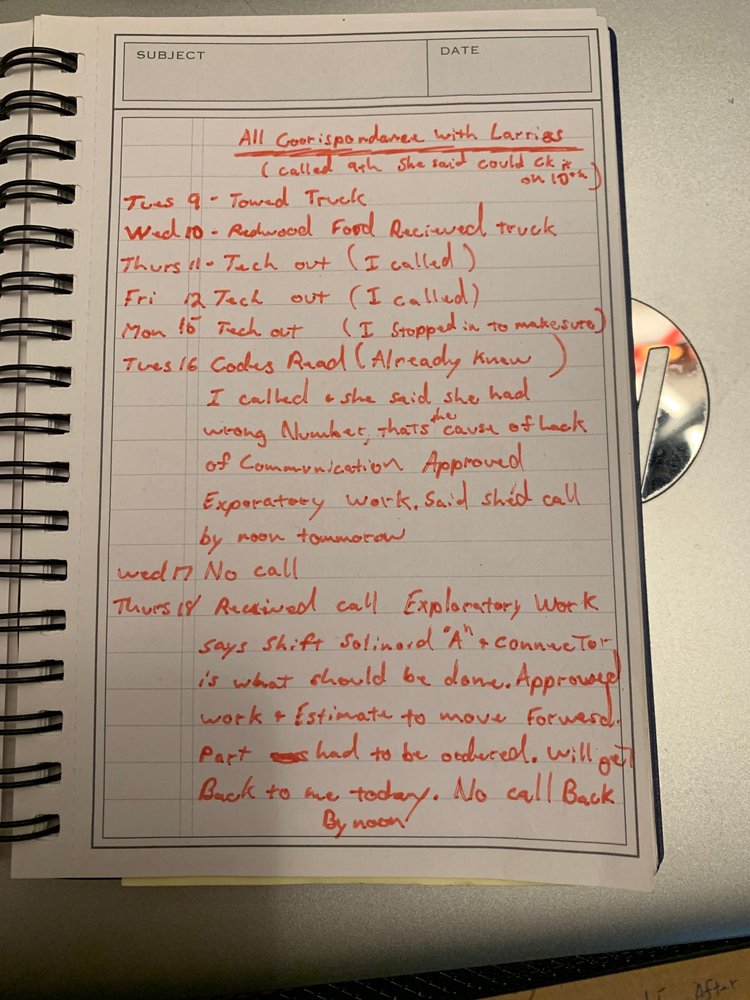 SUBJECT
DATE
All Coorispondance with Larrigs
(called 9th She said could ck it
on 10th)
Tues 9 - Towed Truck
Wed 10 - Redwood Food Recieved truck
Thurs 11 - Tech out (I called)
Fri 12 Tech out (I called)
Mon 15 Tech out (I stopped in to make sure)
Tues 16 Codes Read (Already Knew)
I called & she said she had
wrong Number, thats the cause of lack
of Communication Approved
Exporatory work. Said she'd call
by noon tommorow
Wed 17 No call
Thurs 18 Received call Exploratory Work
says shift Solinord "A" & connector
is what should be done. Approved
work & Estimate to move Forward.
Part had to be ordered. Will get
Back to me today. No call Back
By noon
After